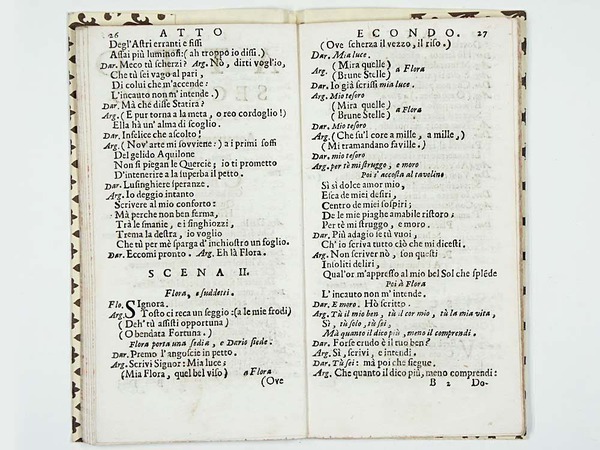 26 ATTO
Degl'Astri erranti e fissi
Assai più luminosi: (ah troppo io dissi.)
Dar. Meco tù scherzi? Arg. Nò, dirti vogl'io,
Che tù sei vago al pari,
Di colui che m'accende:
L'incauto non m'intende.)
Dar. Mà che disse Statira?
Arg. (E pur torna a la meta, o reo cordoglio!)
Ella hà un'alma di scoglio.
Dar. Infelice che ascolto!
Arg. (Nov'arte mi sovviene:) a i primi soffi
Del gelido Aquilone
Non si piegan le Quercie; io ti prometto
D'intenerire a la superba il petto.
Dar. Lusinghiere speranze.
Arg. Io deggio intanto
Scrivere al mio conforto:
Mà perche non ben ferma,
Trà le smanie, e i singhiozzi,
Trema la destra, io voglio
Che tù per mè sparga d'inchiostro un foglio.
Dar. Eccomi pronto. Arg. Eh là Flora.
SCENA II.
Flora, e suddetti.
Flo. SIgnora.
Arg. Tosto ci reca un seggio: (a le mie frodi)
(Deh' tù assisti opportuna)
(O bendata Fortuna.)
Flora porta una sedia, e Dario siede.
Dar. Premo l'angoscie in petto.
Arg. Scrivi Signor: Mia luce;
(Mia Flora, quel bel viso) a Flora
(Ove
ECONDO. 27
(Ove scherza il vezzo, il riso.)
Dar. Mia luce.
Arg. (Mira quelle)
(Brune Stelle) a Flora
Dar. Io già scrissi mia luce.
Arg. Mio tesoro
(Mira quelle)
(Brune Stelle) a Flora
Dar. Mio tesoro
Arg. (Che sù'l core a mille, a mille,)
(Mi tramandano faville.)
Dar. mio tesoro
Arg. per tè mi struggo, e moro
Poi s'accosta al tavolino
Sì sì dolce amor mio,
Esca de miei desiri,
Centro de miei sospiri;
De le mie piaghe amabile ristoro;
Per tè mi struggo, e moro.
Dar. Più adagio se tù vuoi,
Ch'io scriva tutto ciò che mi dicesti.
Arg. Non scriver nò, son questi
Insoliti deliri,
Qual'or m'appresso al mio bel Sol che splẽde
Poi à Flora
L'incauto non m'intende.
Dar. E moro. Hò scritto.
Arg. Tù il mio ben, tù il cor mio, tù la mia vita,
Sì, tù solo, tù sei,
Mà quanto il dico più, meno il comprendi.
Dar. Forse crudo è il tuo ben?
Arg. Sì, scrivi, e intendi.
Dar. Tù sei: ma poi che siegue.
Arg. Che quanto il dico più, meno comprendi:
B 2 Do-